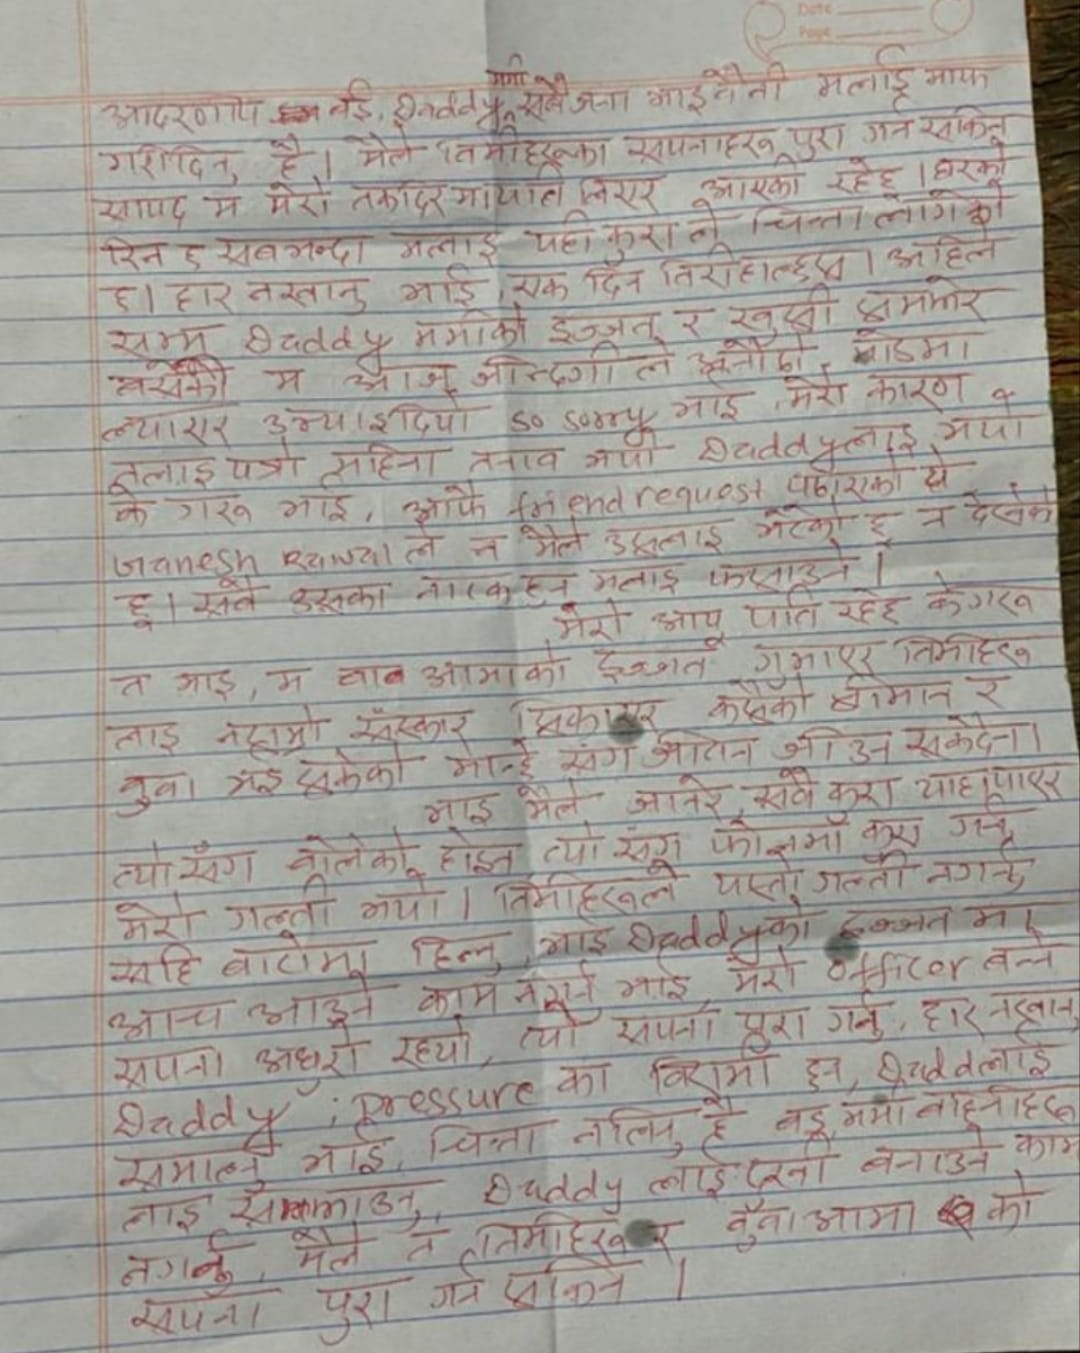 Date
Page
ममी
आदरणीय बई, Daddy, सबैजना भाइबैनी मलाई माफ
गरीदिनु है। मैले तिमीहरूका सपनाहरू पुरा गर्न सकिन
सायद म मेरो तकदिर माथाति लिएर आएकी रहेछु। घरको
रिन ६ सबभन्दा मलाइ यही कुरा ले चिन्ता लागेको
६। हार नखानु भाई, एक दिन तिरीहाल्छस। अहिले
सम्म Daddy ममीको इज्जत र खुसी सम्झेर
बसेकी म आज जीन्दगी ले अनौठो मोडमा
ल्याएर उभ्याइदियो so sorry भाइ, मेरो कारण
तलाइ पत्रो महिना तनाव भयो Daddyलाइ भयो
के गरू भाइ, आफै friend request पठाएको हो
ले न मैले उसलाइ भेटेको छु न देखेको
छु। सबै उसका नाटक हुन मलाइ फसाउने।
मेरो आयु यति रहेछ के गरू
त भाइ, म बाबा आमाको इज्जत गुमाएर तिमीहरू
लाइ नराम्रो सँस्कार सिकाएर कसैको श्रीमान र
बुवा भइसकेको मान्छे संग जीवन जीउन सक्दैन।
भाइ मैले जानेर, सबै कुरा थाहापाएर
त्यो सँग बोलेको होइन त्यो सँग फोनमाँ कुरा गर्नु
मेरो गल्ती भयो। तिमीहरूले यस्तो गल्ती नगर्नु
सहि बाटोमा हिन्नु, भाइ Daddyको इज्जत मा
आच आउने काम नगर्नु भाई, मेरो officer बन्ने
सपना अधुरो रह्यो, त्यो सपना पुरा गर्नु, हार नखानु
Daddy pressure का बिरामी हुन, Daddलाई
समाल्नु भाई, चिन्ता नलिनु है बइ, ममी बहिनीहरू
लाइ सम्झाउनु, Daddy लाइ दुखी बनाउने काम
नगर्नु, मैले त तिमीहरू र बुँवा आमा को
सपना पुरा गर्न सकिन।